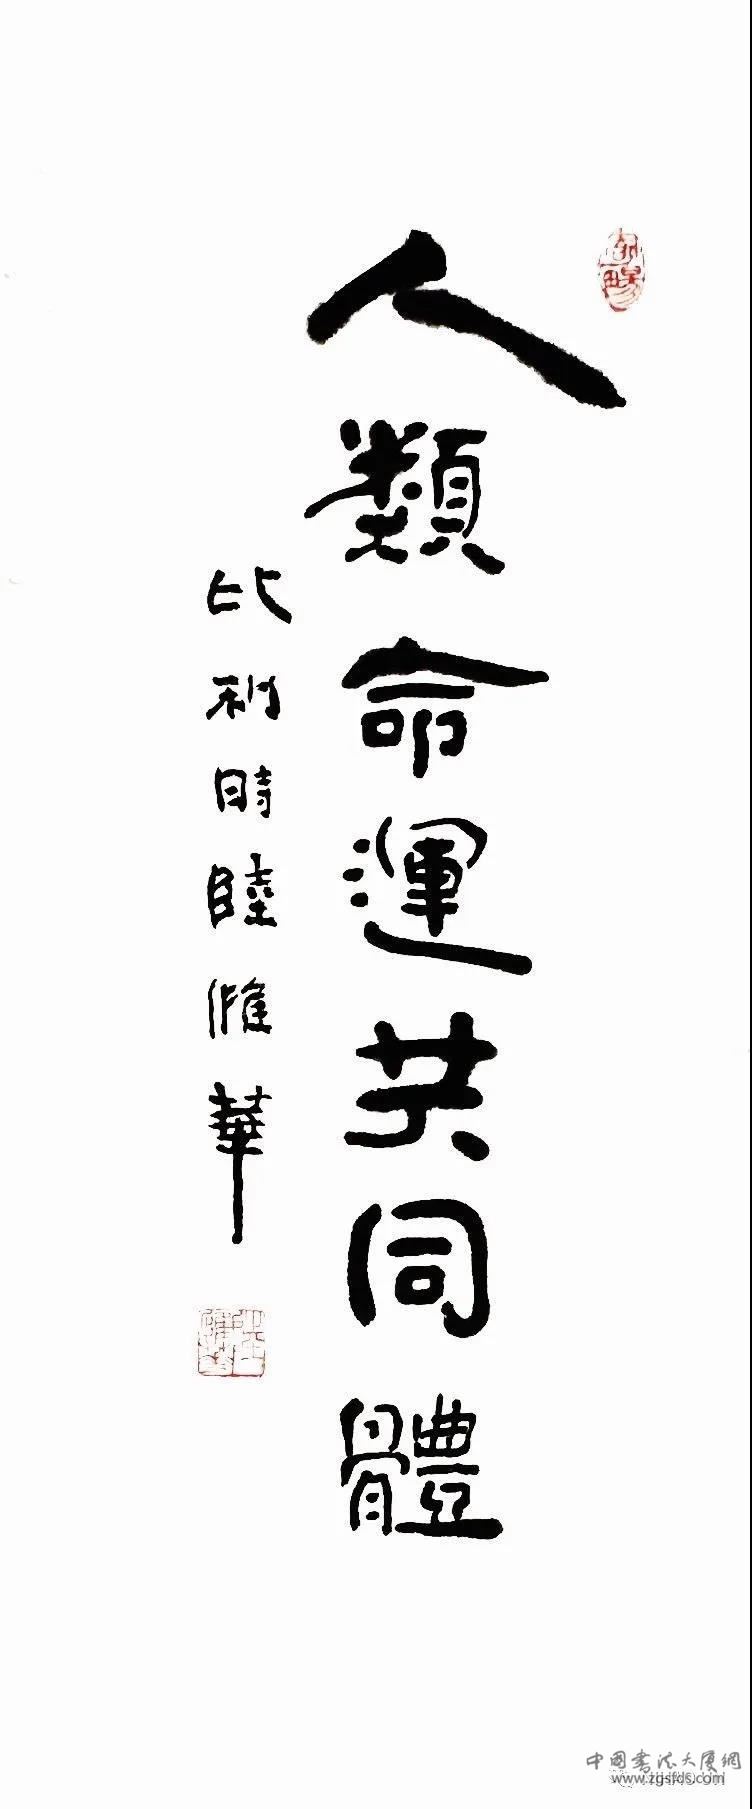 人類命運共同體
比利時陸惟華
中國書法大廈網
www.zgsfds.com